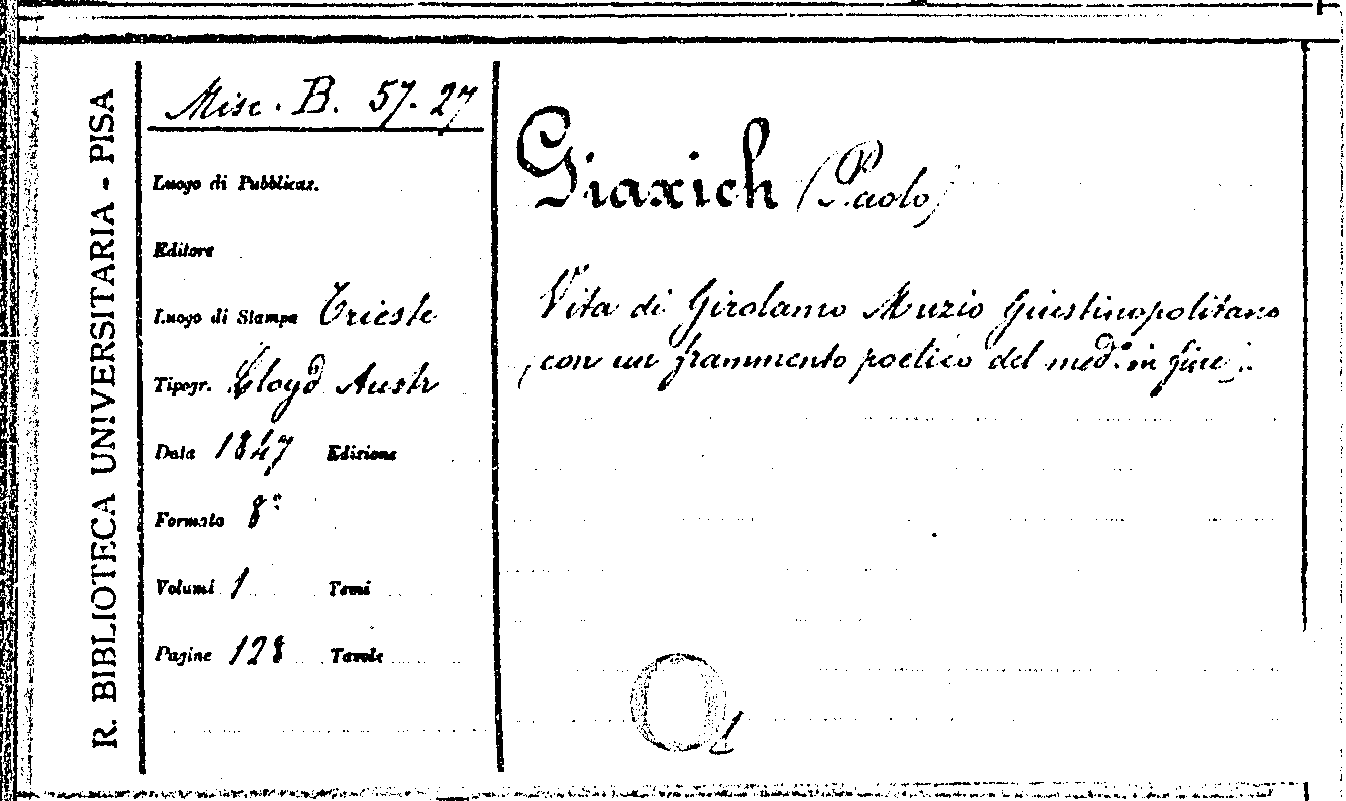 R. BIBLIOTECA UNIVERSITARIA - PISA
Misc. B. 57. 27
Luogo di Pubblicaz.
Editore
Luogo di Stampa Trieste
Tipogr. Lloyd Austr
Data 1847 Edizione
Formato 8°
Volumi 1 Tomi
Pagine 128 Tavole
Giaxich (Paolo)
Vita di Girolamo Muzio Giustinopolitano
(con un frammento poetico del med.° in fine).